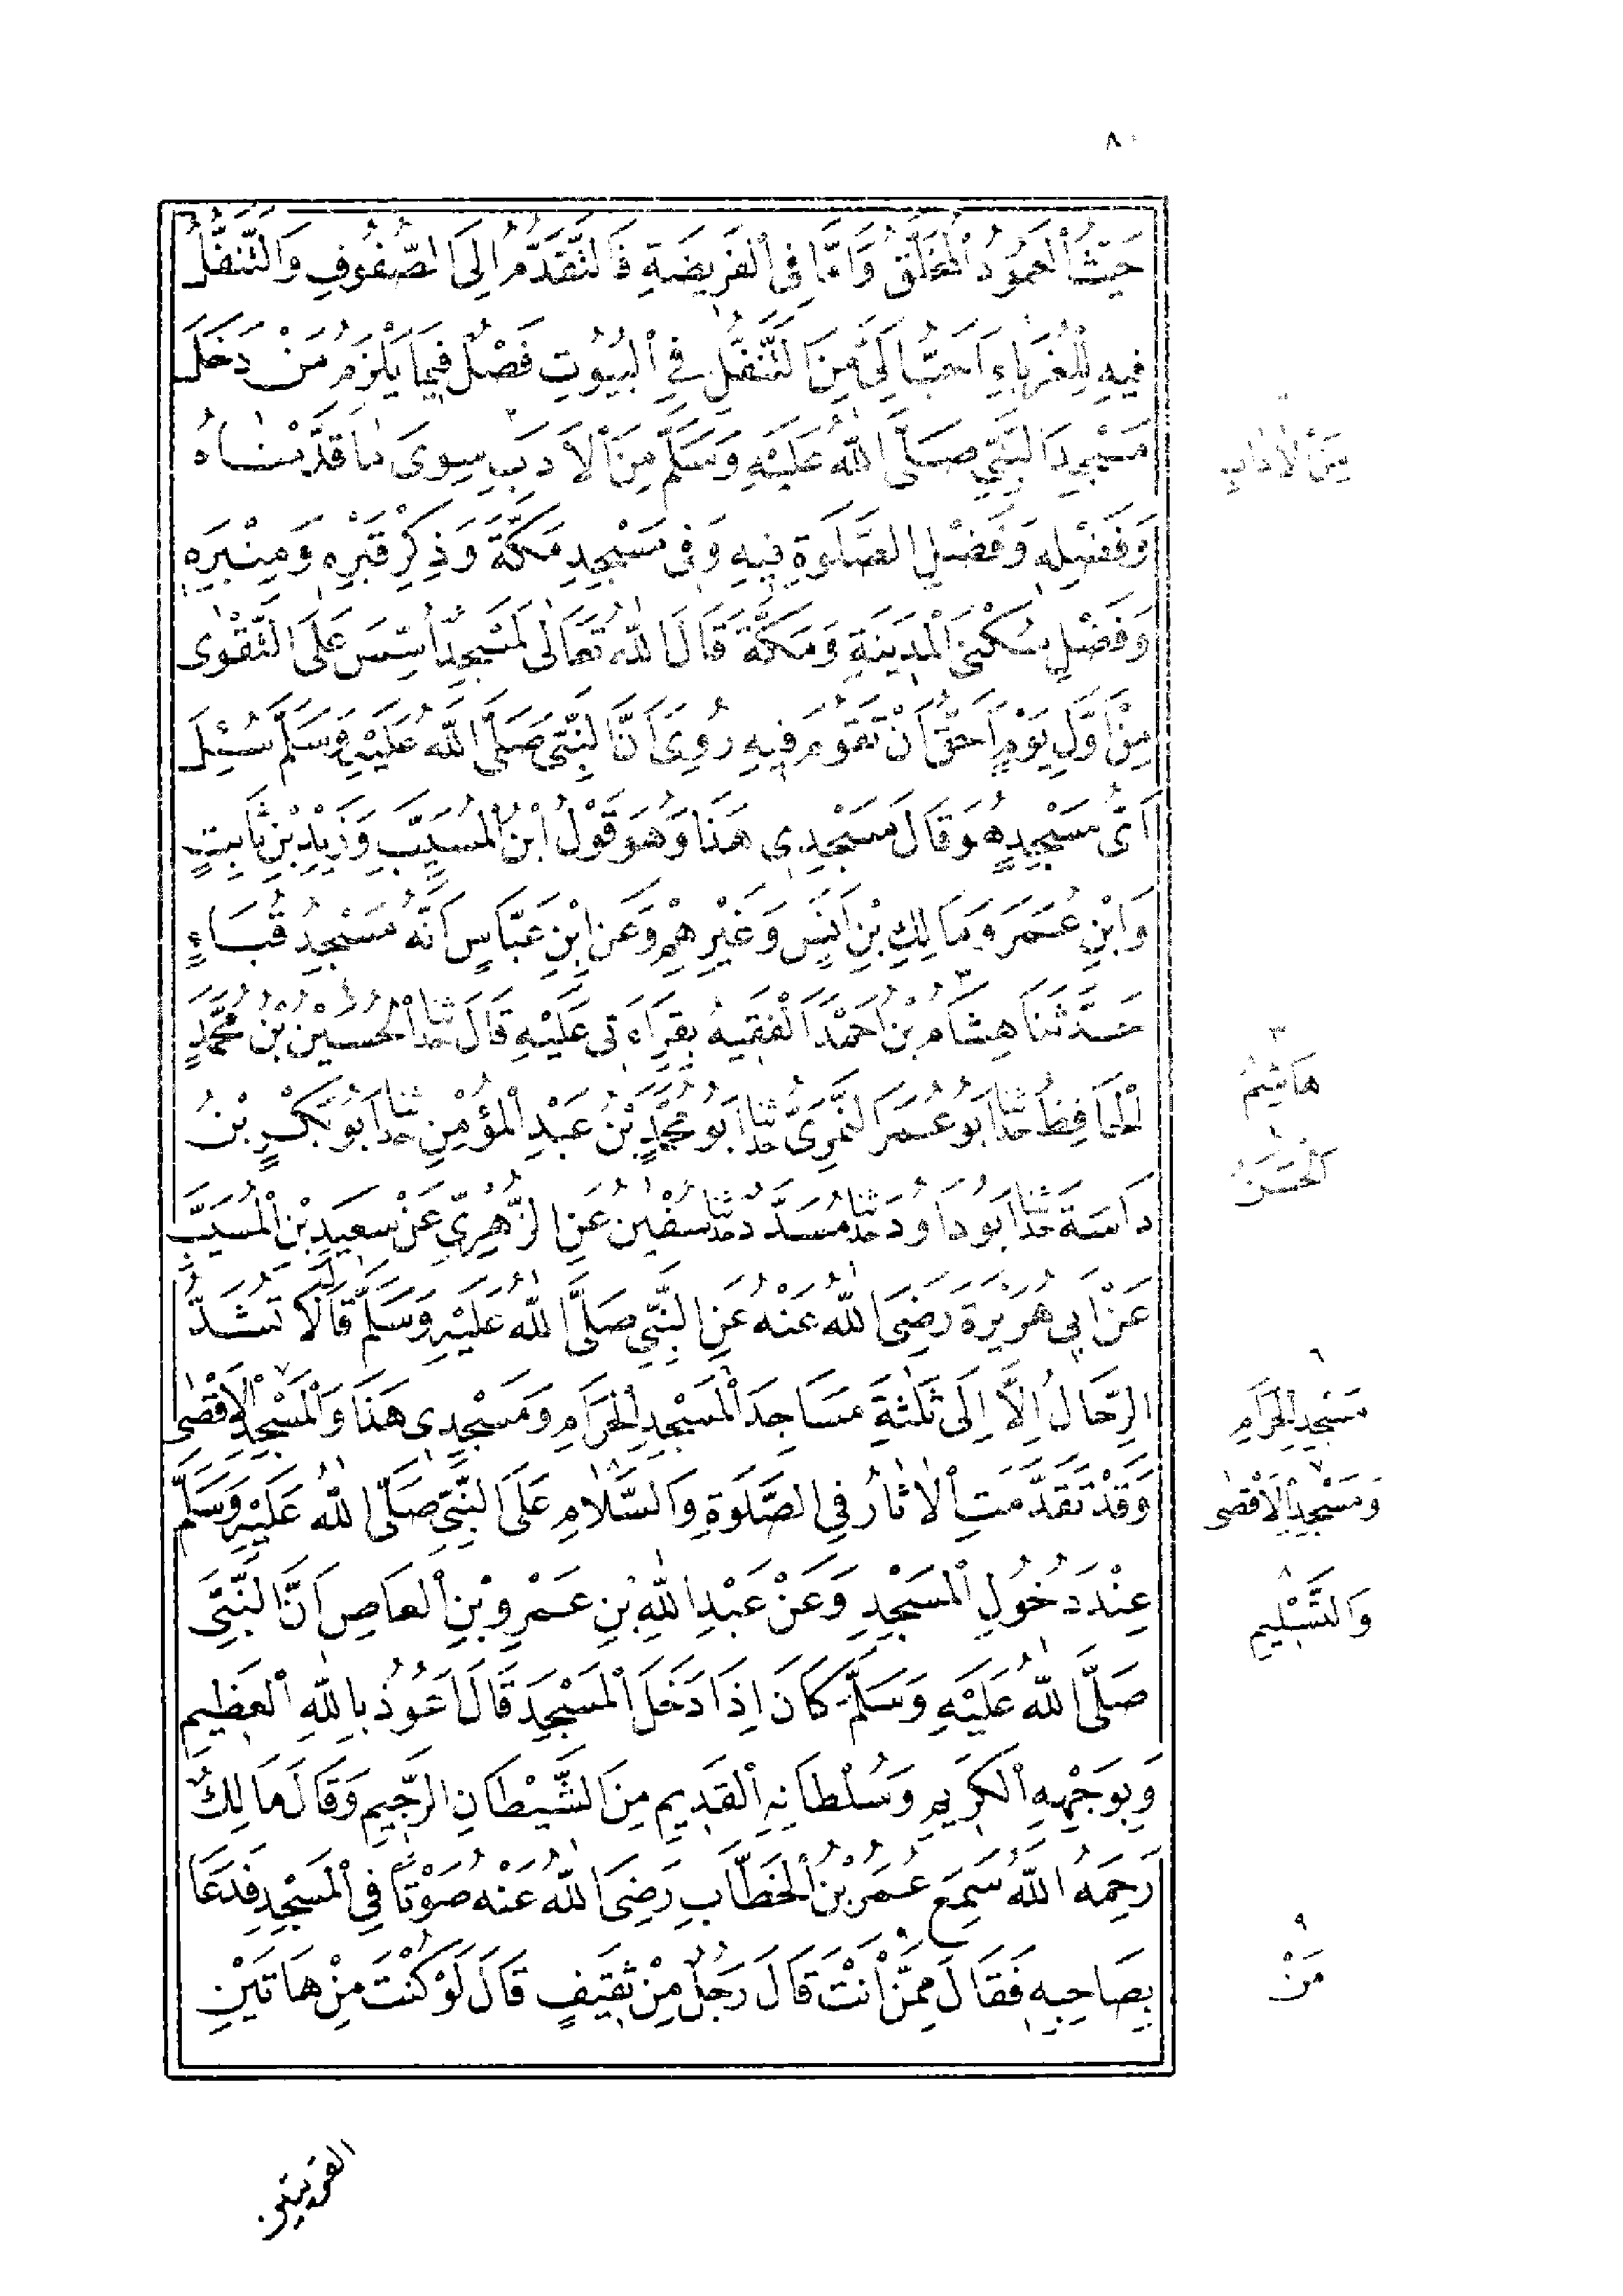 ٨٠
حَيْثُ الْعَمُودُ الْمُخَلَّقُ وَاَمَّا فِى الْفَرِيضَةِ فَالتَّقَدُّمُ اِلَى الصُّفُوفِ وَالتَّنَفُّلُ
فِيهِ لِلْغُرَبَاءِ اَحَبُّ اِلَىَّ مِنَ التَّنَفُّلِ فِى الْبُيُوتِ فَصْلٌ فِيمَا يَلْزَمُ مَنْ دَخَلَ
مَسْجِدَ النَّبِيِّ صَلَّى اللهُ عَلَيْهِ وَسَلَّمَ مِنَ الْاَدَبِ سِوَى مَا قَدَّمْنَاهُ
مِنَ الْاٰدَابِ
وَفَضْلِهِ وَفَضْلِ الصَّلٰوةِ فِيهِ وَفِى مَسْجِدِ مَكَّةَ وَذِكْرِ قَبْرِهِ وَمِنْبَرِهِ
وَفَضْلِ سُكْنَى الْمَدِينَةِ وَمَكَّةَ قَالَ اللهُ تَعَالٰى لَمَسْجِدٌ اُسِّسَ عَلَى التَّقْوٰى
مِنْ اَوَّلِ يَوْمٍ اَحَقُّ اَنْ تَقُومَ فِيهِ رُوِىَ اَنَّ النَّبِىَّ صَلَّى اللهُ عَلَيْهِ وَسَلَّمَ سُئِلَ
اَىُّ مَسْجِدٍ هُوَ قَالَ مَسْجِدِى هَذَا وَهُوَ قَوْلُ ابْنِ الْمُسَيَّبِ وَزَيْدِ بْنِ ثَابِتٍ
وَابْنِ عُمَرَ وَمَالِكِ بْنِ اَنَسٍ وَغَيْرِهِمْ وَعَنِ ابْنِ عَبَّاسٍ اَنَّهُ مَسْجِدُ قُبَاءٍ
حَدَّثَنَا هِشَامُ بْنُ اَحْمَدَ الْفَقِيهُ بِقِرَاءَتِى عَلَيْهِ قَالَ حَدَّثَنَا الْحُسَيْنُ بْنُ مُحَمَّدٍ
٣
هَاشِمُ
الْحَافِظُ حَدَّثَنَا اَبُو عُمَرَ النَّمَرِىُّ حَدَّثَنَا اَبُو مُحَمَّدٍ بْنُ عَبْدِ الْمُؤْمِنِ حَدَّثَنَا اَبُو بَكْرٍ بْنُ
الْحَسَنُ
دَاسَةَ حَدَّثَنَا اَبُو دَاوُدَ حَدَّثَنَا مُسَدَّدٌ حَدَّثَنَا سُفْيٰنُ عَنِ الزُّهْرِيِّ عَنْ سَعِيدِ بْنِ الْمُسَيَّبِ
عَنْ اَبِى هُرَيْرَةَ رَضِىَ اللهُ عَنْهُ عَنِ النَّبِيِّ صَلَّى اللهُ عَلَيْهِ وَسَلَّمَ قَالَ لَا تُشَدُّ
الرِّحَالُ اِلَّا اِلَى ثَلٰثَةِ مَسَاجِدَ الْمَسْجِدِ الْحَرَامِ وَمَسْجِدِى هَذَا وَالْمَسْجِدِ الْاَقْصٰى
٦
مَسْجِدِ الْحَرَامِ
وَقَدْ تَقَدَّمَتِ الْاٰثَارُ فِى الصَّلٰوةِ وَالسَّلَامِ عَلَى النَّبِيِّ صَلَّى اللهُ عَلَيْهِ وَسَلَّمَ
٧
وَمَسْجِدِ الْاَقْصٰى
عِنْدَ دُخُولِ الْمَسْجِدِ وَعَنْ عَبْدِ اللهِ بْنِ عَمْرِو بْنِ الْعَاصِ اَنَّ النَّبِىَّ
٨
وَالتَّسْلِيمِ
صَلَّى اللهُ عَلَيْهِ وَسَلَّمَ كَانَ اِذَا دَخَلَ الْمَسْجِدَ قَالَ اَعُوذُ بِاللهِ الْعَظِيمِ
وَبِوَجْهِهِ الْكَرِيمِ وَسُلْطَانِهِ الْقَدِيمِ مِنَ الشَّيْطَانِ الرَّجِيمِ وَقَالَ مَالِكٌ
رَحِمَهُ اللهُ سَمِعَ عُمَرُ بْنُ الْخَطَّابِ رَضِىَ اللهُ عَنْهُ صَوْتًا فِى الْمَسْجِدِ فَدَعَا
بِصَاحِبِهِ فَقَالَ مِمَّنْ اَنْتَ قَالَ رَجُلٌ مِنْ ثَقِيفٍ قَالَ لَوْ كُنْتَ مِنْ هَاتَيْنِ
٩
مَنْ
القريتين